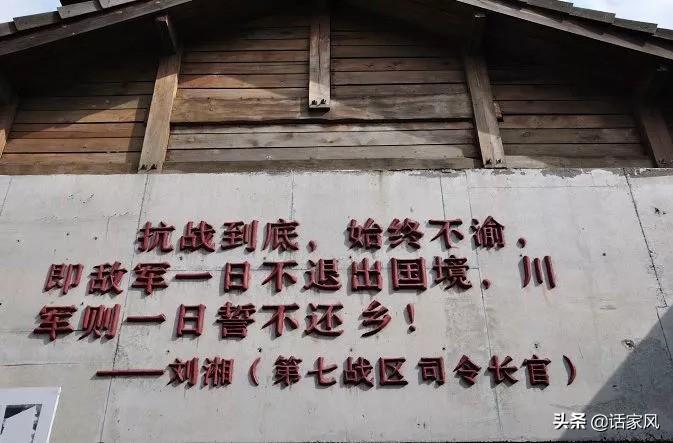 抗战到底，始终不渝，
即敌军一日不退出国境，川
军则一日誓不还乡！
——刘湘（第七战区司令长官）
头条 @话家风